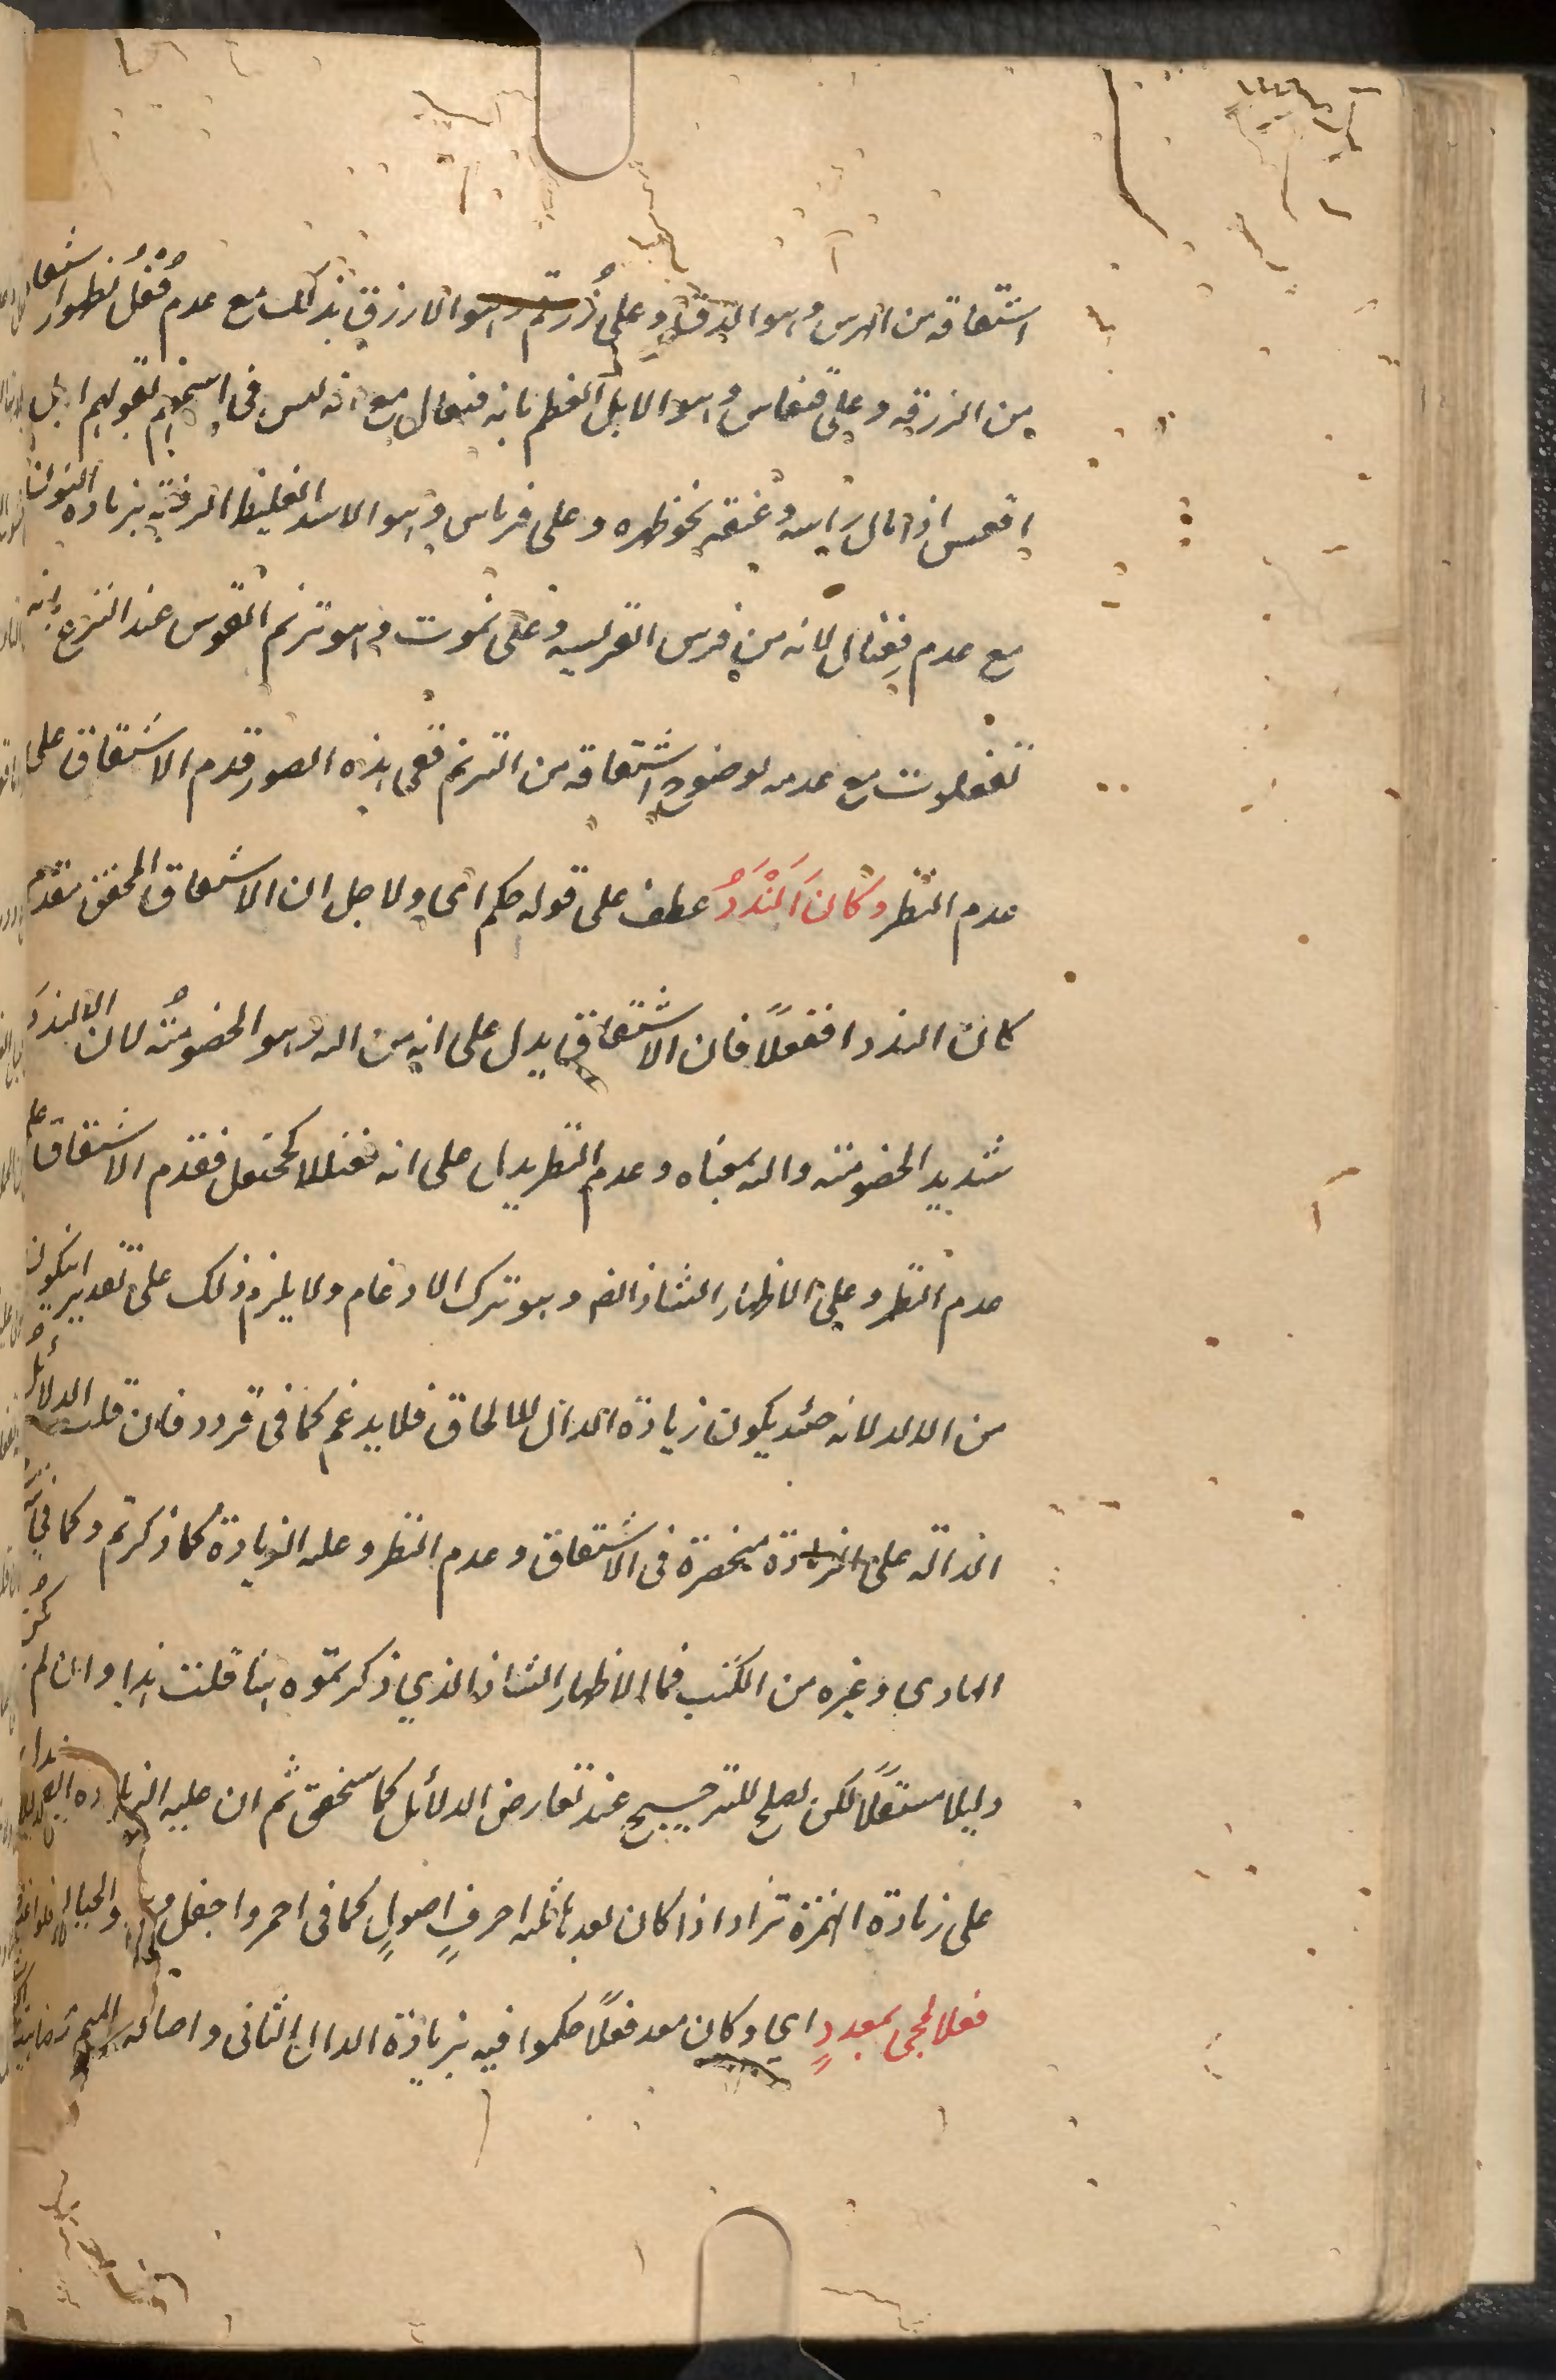 اشتقاقه من الهرس وهو الدق وعلى زُرقم وهو الازرق بذلك مع عدم فُعْلُم لظهور اشتقاقه
من الزرقه وعلى قنعاس وهو الابل العظم بانه فنعال مع انه ليس في ابنيتهم لقولهم ابل
اقعس اذا مال راسه وعنقه نحو ظهره وعلى فرناس وهو الاسد الغليظ الرقبه بزيادة النون
مع عدم فِعْنال لانه من فرس الفريسه وعلى ترنموت وهو ترنم القوس عند النزع بانه
تفعلوت مع عدمه لوضوح اشتقاقه من الترنم ففي هذه الصور قدم الاشتقاق على
عدم النظر وكَانَ اَلَنْدَدُ عطف على قوله حكم اى ولاجل ان الاشتقاق المحقق مقدم
كان الندد افنعلاً فان الاشتقاق يدل على انه من اللد وهو الخصومة لان الالندد
شديد الخصومته والد بمعناه وعدم النظر يدل على انه فعنلل كجحنفل فقدم الاشتقاق على
عدم النظر وعلى الاظهار الشاذ ايضا وهو ترك الادغام ولا يلزم ذلك على تقدير ان يكون
من الالد لانه حينئذ يكون زيادة الدال للالحاق فلا يدغم كما فى قردد فان قلت الدلائل
الدالة على الزيادة منحصرة فى الاشتقاق وعدم النظر وغلبه الزيادة كما ذكرتم وكما فى
الهادى وغيره من الكتب فما الاظهار الشاذ الذي ذكرتموه هنا قلت هذا وان لم يكن
دليلا مستقلاً لكن يصلح للترجيح عند تعارض الدلائل كما سنحقق ثم ان غلبه الزيادة
على زيادة الهمزة تزاد اذا كان بعدها ثلثه احرفٍ اصولٍ كما فى احمر واجفل
فعلا لمجى بمعددٍ اي وكان معد فعلاً حكموا فيه بزيادة الدال الثانى واصاله الميم